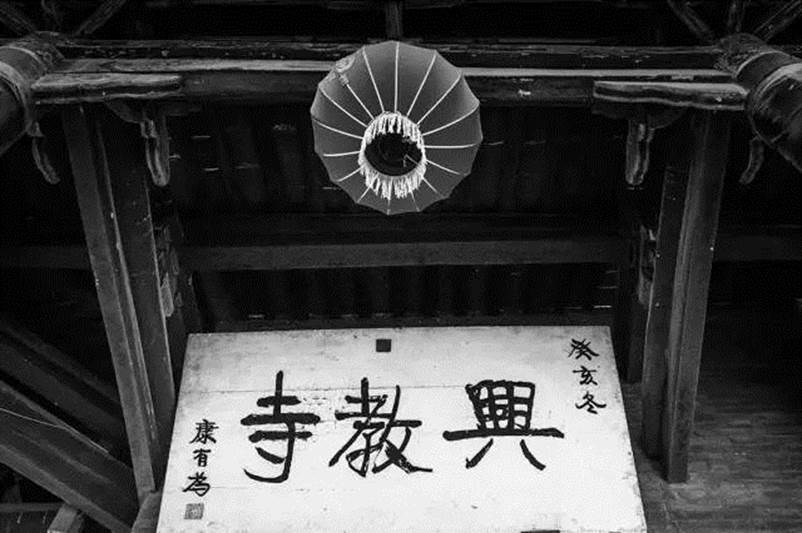 癸亥冬
興教寺
康有為